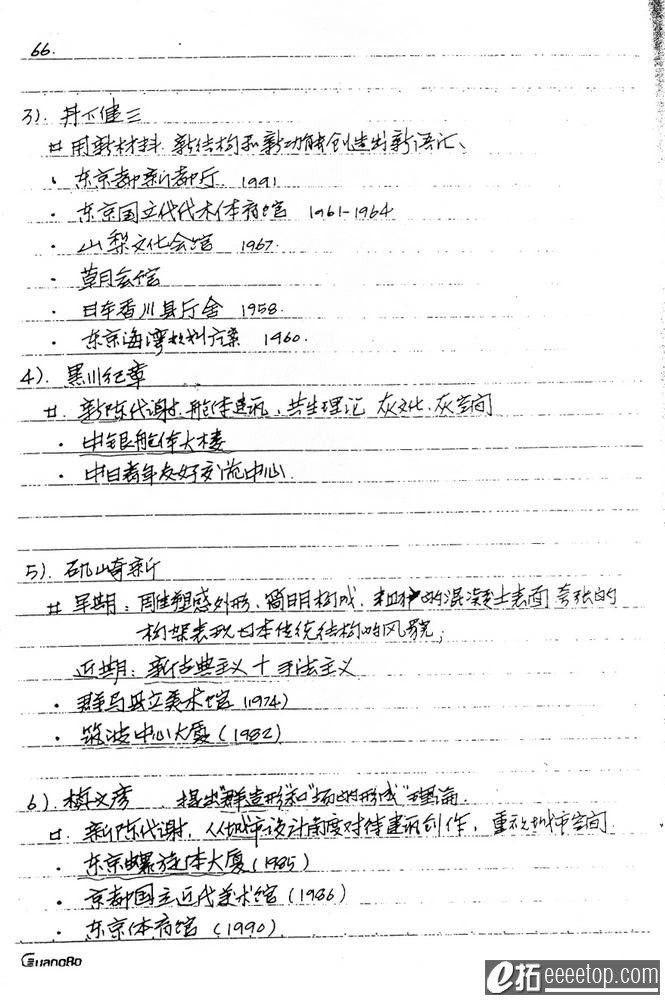 66.
3). 丹下健三
廿 用新材料 新结构和新功能创造出新语汇、
· 东京都新都厅 1991
· 东京国立代代木体育馆 1961-1964
· 山梨文化会馆 1967.
· 草月会馆
· 日本香川县厅舍 1958.
· 东京海湾规划方案 1960.
4). 黑川纪章
廿. 新陈代谢. 舱体建筑、共生理论 灰文化、灰空间
· 中银舱体大楼
· 中日青年友好交流中心.
5). 矶崎新
廿 早期：周生塑感外形、简明构成、粗犷的混凝土表面 夸张的
构架表现日本传统结构的风貌；
近期：新古典主义 + 手法主义
· 群马县立美术馆 (1974)
· 筑波中心大厦 (1982)
6). 槙文彦 提出"群造形"和"场所的形成"理论.
廿. 新陈代谢, 从城市设计角度对待建筑创作, 重视城市空间
· 东京螺旋体大厦 (1985)
· 京都国立近代美术馆 (1986)
· 东京体育馆 (1990)
GuangBo
e拓 eeeetop.com